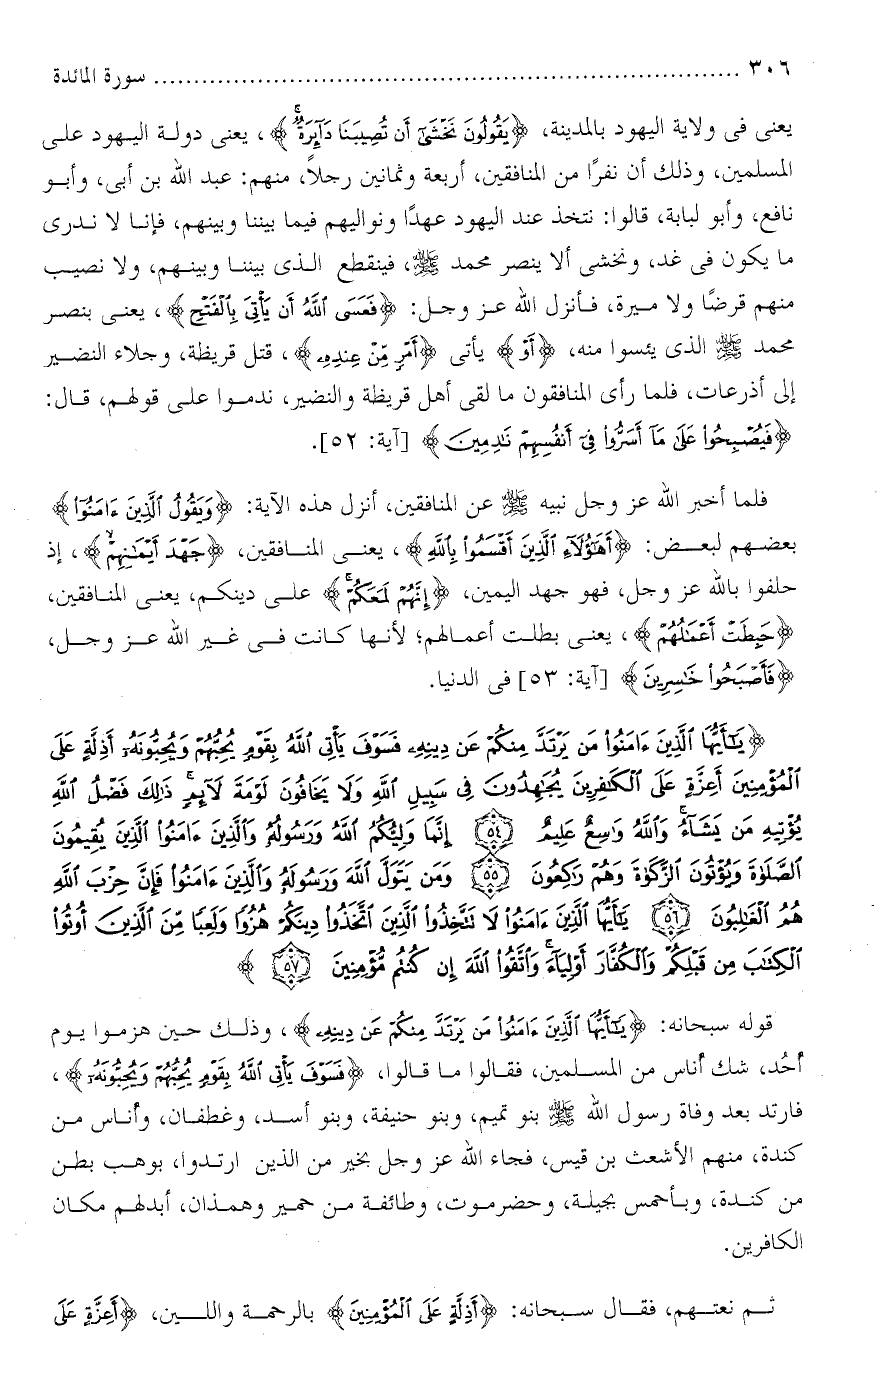 ٣٠٦ ................................................................ سورة المائدة
يعنى فى ولاية اليهود بالمدينة، ﴿يَقُولُونَ نَخْشَىٰٓ أَن تُصِيبَنَا دَآئِرَةٌۚ﴾، يعنى دولة اليهود على
المسلمين، وذلك أن نفرًا من المنافقين، أربعة وثمانين رجلاً، منهم: عبد الله بن أبى، وأبو
نافع، وأبو لبابة، قالوا: نتخذ عند اليهود عهدًا ونواليهم فيما بيننا وبينهم، فإنا لا ندرى
ما يكون فى غد، ونخشى ألا ينصر محمد ﷺ، فينقطع الذى بيننا وبينهم، ولا نصيب
منهم قرضًا ولا ميرة، فأنزل الله عز وجل: ﴿فَعَسَى ٱللَّهُ أَن يَأْتِىَ بِٱلْفَتْحِ﴾، يعنى بنصر
محمد ﷺ الذى يئسوا منه، ﴿أَوْ﴾ يأتى ﴿أَمْرٍ مِّنْ عِندِهِۦ﴾، قتل قريظة، وجلاء النضير
إلى أذرعات، فلما رأى المنافقون ما لقى أهل قريظة والنضير، ندموا على قولهم، قال:
﴿فَيُصْبِحُوا۟ عَلَىٰ مَآ أَسَرُّوا۟ فِىٓ أَنفُسِهِمْ نَـٰدِمِينَ﴾ [آية: ٥٢].
فلما أخبر الله عز وجل نبيه ﷺ عن المنافقين، أنزل هذه الآية: ﴿وَيَقُولُ ٱلَّذِينَ ءَامَنُوٓا۟﴾
بعضهم لبعض: ﴿أَهَـٰٓؤُلَآءِ ٱلَّذِينَ أَقْسَمُوا۟ بِٱللَّهِ﴾، يعنى المنافقين، ﴿جَهْدَ أَيْمَـٰنِهِمْۙ﴾، إذ
حلفوا بالله عز وجل، فهو جهد اليمين، ﴿إِنَّهُمْ لَمَعَكُمْۚ﴾ على دينكم، يعنى المنافقين،
﴿حَبِطَتْ أَعْمَـٰلُهُمْ﴾، يعنى بطلت أعمالهم؛ لأنها كانت فى غير الله عز وجل،
﴿فَأَصْبَحُوا۟ خَـٰسِرِينَ﴾ [آية: ٥٣] فى الدنيا.
﴿يَـٰٓأَيُّهَا ٱلَّذِينَ ءَامَنُوا۟ مَن يَرْتَدَّ مِنكُمْ عَن دِينِهِۦ فَسَوْفَ يَأْتِى ٱللَّهُ بِقَوْمٍ يُحِبُّهُمْ وَيُحِبُّونَهُۥٓ أَذِلَّةٍ عَلَى
ٱلْمُؤْمِنِينَ أَعِزَّةٍ عَلَى ٱلْكَـٰفِرِينَ يُجَـٰهِدُونَ فِى سَبِيلِ ٱللَّهِ وَلَا يَخَافُونَ لَوْمَةَ لَآئِمٍۚ ذَٰلِكَ فَضْلُ ٱللَّهِ
يُؤْتِيهِ مَن يَشَآءُۚ وَٱللَّهُ وَٰسِعٌ عَلِيمٌ ٥٤ إِنَّمَا وَلِيُّكُمُ ٱللَّهُ وَرَسُولُهُۥ وَٱلَّذِينَ ءَامَنُوا۟ ٱلَّذِينَ يُقِيمُونَ
ٱلصَّلَوٰةَ وَيُؤْتُونَ ٱلزَّكَوٰةَ وَهُمْ رَٰكِعُونَ ٥٥ وَمَن يَتَوَلَّ ٱللَّهَ وَرَسُولَهُۥ وَٱلَّذِينَ ءَامَنُوا۟ فَإِنَّ حِزْبَ ٱللَّهِ
هُمُ ٱلْغَـٰلِبُونَ ٥٦ يَـٰٓأَيُّهَا ٱلَّذِينَ ءَامَنُوا۟ لَا تَتَّخِذُوا۟ ٱلَّذِينَ ٱتَّخَذُوا۟ دِينَكُمْ هُزُوًا وَلَعِبًا مِّنَ ٱلَّذِينَ أُوتُوا۟
ٱلْكِتَـٰبَ مِن قَبْلِكُمْ وَٱلْكُفَّارَ أَوْلِيَآءَۚ وَٱتَّقُوا۟ ٱللَّهَ إِن كُنتُم مُّؤْمِنِينَ ٥٧ ﴾
قوله سبحانه: ﴿يَـٰٓأَيُّهَا ٱلَّذِينَ ءَامَنُوا۟ مَن يَرْتَدَّ مِنكُمْ عَن دِينِهِۦ﴾، وذلك حين هزموا يوم
أُحُد، شك أناس من المسلمين، فقالوا ما قالوا، ﴿فَسَوْفَ يَأْتِى ٱللَّهُ بِقَوْمٍ يُحِبُّهُمْ وَيُحِبُّونَهُۥٓ﴾،
فارتد بعد وفاة رسول الله ﷺ بنو تميم، وبنو حنيفة، وبنو أسد، وغطفان، وأناس من
كندة، منهم الأشعث بن قيس، فجاء الله عز وجل بخير من الذين ارتدوا، بوهب بطن
من كندة، وبأحمس بجيلة، وحضرموت، وطائفة من حمير وهمذان، أبدلهم مكان
الكافرين.
ثم نعتهم، فقال سبحانه: ﴿أَذِلَّةٍ عَلَى ٱلْمُؤْمِنِينَ﴾ بالرحمة واللين، ﴿أَعِزَّةٍ عَلَى